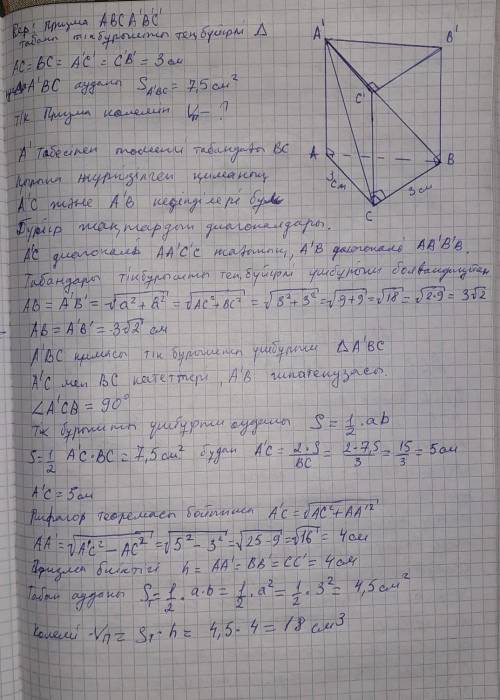 Бер: Призма ABCA'B'C'
табаны тікбұрышты теңбүйірлі Δ
AC = BC = A'C' = C'B' = 3 см
ΔA'BC ауданы S A'BC = 7,5 см²
тік Призма көлемін Vп - ?
A' B'
C'
A B
3см 3 см
C
A' төбесінен төменгі табандағы BC
жүргізілген қиманың
A'C және A'B
Бүйір жақтардың диагональдары.
A'C диагональ AA'C'C жазықтық, A'B диагональ AA'B'B.
Табандары тікбұрышты теңбүйірлі үшбұрыш болғандықтан
AB = A'B' = √a²+a² = √AC²+BC² = √3²+3² = √9+9 = √18 = √2·9 = 3√2
AB = A'B' = 3√2 см
A'BC қимасы тік бұрышты үшбұрыш ΔA'BC
A'C мен BC катеттері, A'B гипотенузасы.
∠A'CB = 90°
Тік бұрышты үшбұрыш ауданы S = 1/2 · ab
S = 1/2 A'C · BC = 7,5 см² бұдан A'C = 2·S/BC = 2·7,5/3 = 15/3 = 5 см
A'C = 5 см
Пифагор теоремасы бойынша A'C = √AC²+AA'²
AA' = √A'C² − AC² = √5² − 3² = √25−9 = √16 = 4 см
Призма биіктігі h = AA' = BB' = CC' = 4 см
Табан ауданы Sт = 1/2 · a·b = 1/2 · a² = 1/2 · 3² = 4,5 см²
Көлемі Vп = Sт · h = 4,5 · 4 = 18 см³